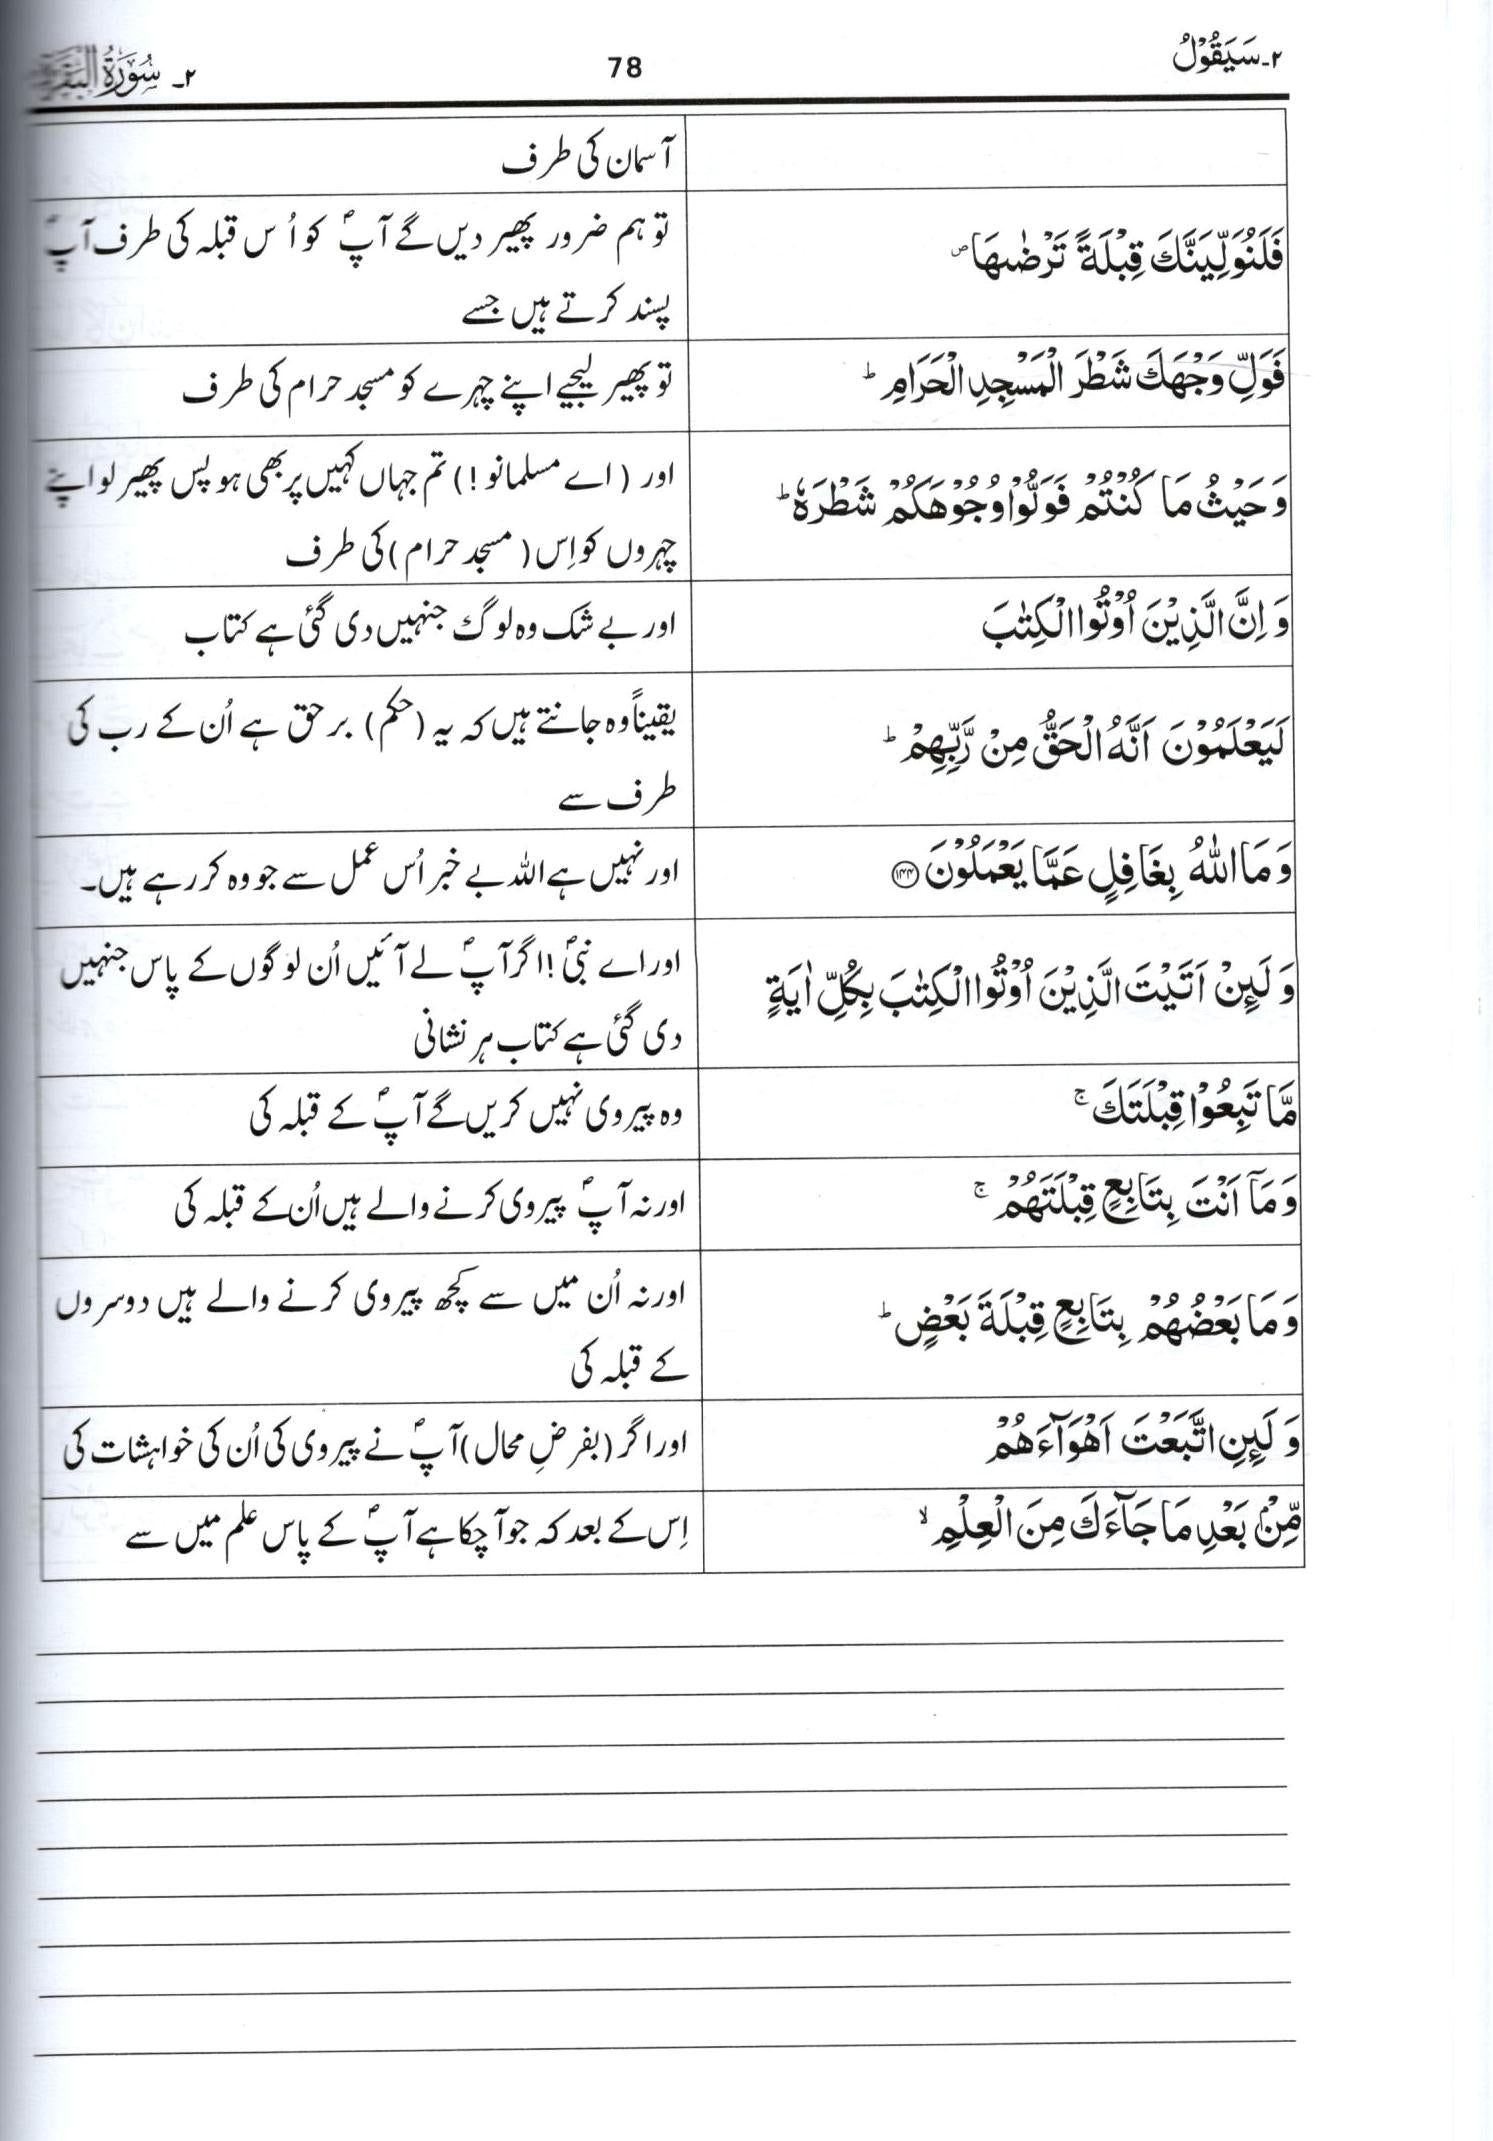 ۲۔سَیَقُوْلُ
78
۲۔ سُوْرَةُ الْبَقَرَة
آسمان کی طرف
فَلَنُوَلِّیَنَّكَ قِبْلَةً تَرْضٰىهَا ۪ص
تو ہم ضرور پھیر دیں گے آپؐ کو اُس قبلہ کی طرف آپؐ
پسند کرتے ہیں جسے
فَوَلِّ وَجْهَكَ شَطْرَ الْمَسْجِدِ الْحَرَامِ ؕ
تو پھیر لیجیے اپنے چہرے کو مسجد حرام کی طرف
وَ حَیْثُ مَا كُنْتُمْ فَوَلُّوْا وُجُوْهَكُمْ شَطْرَهٗ ؕ
اور (اے مسلمانو!) تم جہاں کہیں پر بھی ہو پس پھیر لو اپنے
چہروں کو اِس (مسجد حرام) کی طرف
وَ اِنَّ الَّذِیْنَ اُوْتُوا الْكِتٰبَ
اور بے شک وہ لوگ جنہیں دی گئی ہے کتاب
لَیَعْلَمُوْنَ اَنَّهُ الْحَقُّ مِنْ رَّبِّهِمْ ؕ
یقیناً وہ جانتے ہیں کہ یہ (حکم) برحق ہے اُن کے رب کی
طرف سے
وَ مَا اللّٰهُ بِغَافِلٍ عَمَّا یَعْمَلُوْنَ ﴿۱۴۴﴾
اور نہیں ہے اللہ بے خبر اُس عمل سے جو وہ کر رہے ہیں۔
وَ لَىِٕنْ اَتَیْتَ الَّذِیْنَ اُوْتُوا الْكِتٰبَ بِكُلِّ اٰیَةٍ
اور اے نبیؐ! اگر آپؐ لے آئیں اُن لوگوں کے پاس جنہیں
دی گئی ہے کتاب ہر نشانی
مَّا تَبِعُوْا قِبْلَتَكَ ۚ
وہ پیروی نہیں کریں گے آپؐ کے قبلہ کی
وَ مَاۤ اَنْتَ بِتَابِعٍ قِبْلَتَهُمْ ۚ
اور نہ آپؐ پیروی کرنے والے ہیں اُن کے قبلہ کی
وَ مَا بَعْضُهُمْ بِتَابِعٍ قِبْلَةَ بَعْضٍ ؕ
اور نہ اُن میں سے کچھ پیروی کرنے والے ہیں دوسروں
کے قبلہ کی
وَ لَىِٕنِ اتَّبَعْتَ اَهْوَآءَهُمْ
اور اگر (بفرضِ محال) آپؐ نے پیروی کی اُن کی خواہشات کی
مِّنْۢ بَعْدِ مَا جَآءَكَ مِنَ الْعِلْمِ ۙ
اِس کے بعد کہ جو آچکا ہے آپؐ کے پاس علم میں سے